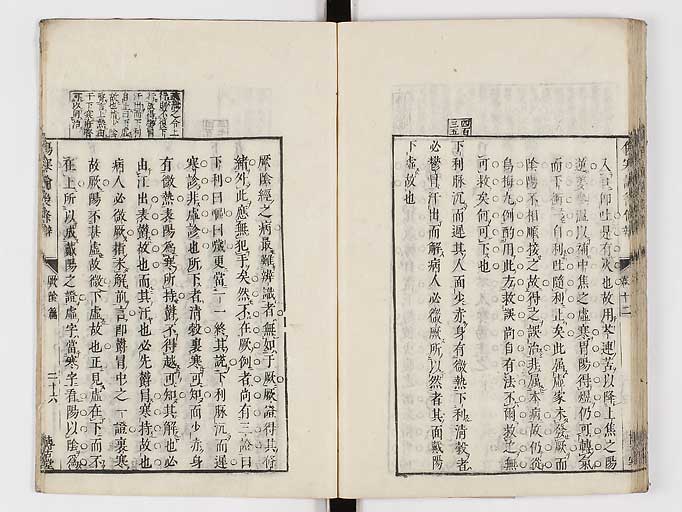 入口即吐是有火也故用芩連苦以降上焦之陽
逆姜參溫以彌中焦之虛寒胃陽得煖仍可轉氣
而下衝自利吐隨利止矣此屬虛家未發厥而
陰陽不相順接之故得之誤治非屬本病故仍從
烏梅九例酌用此方救誤前自有法不爾救之無
可救矣何可下也
四百三五
下利脉沉而遲其人面少赤身有微熱下利清穀者
必鬱冒汗出而解病人必微厥所以然者其面戴陽
下虛故也
厥陰經之病最難辨識者無如于厥厥證得其
緒外此應無犯手矣然不在厥例者尚有三證曰
下利曰嘔曰噦更當一一終其說下利脉沉而遲
寒診非虛診也所下者清穀裏寒可知而少赤身
有微熱表陽為寒所持鬱不得越可知其解也必
由汗出表鬱故也而其汗也必先鬱冒寒持故也
病人必微厥指未解前言即鬱冒中之一證裏寒
故厥陽不甚虛故微下虛故也正見虛在下而不
在上所以成戴陽之證虛字當寒字看陽以陰為
傷寒論後條辨
厥陰篇
三十六